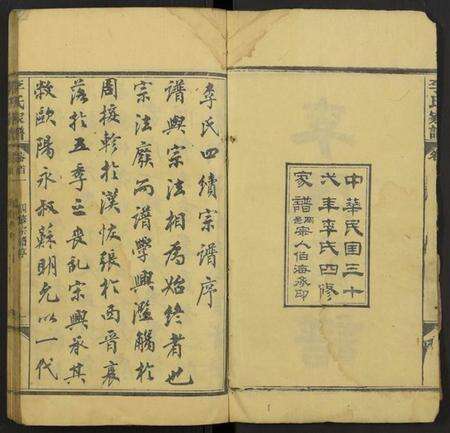 李氏家譜
卷
中華民國三十
年李氏四修
家譜 宗人伯海承印
李氏四續宗譜序
譜與宗法相為始終者也
宗法廢而譜學興濫觴於
周接軫於漢恢張於西晉衰
落於五季之喪亂宗興承其
敝歐陽永叔蘇明允以一代
李氏家譜
卷首
四修宗譜序
一